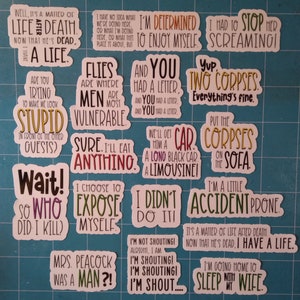 WELL, IT'S A MATTER OF
LIFE AFTER DEATH.
NOW THAT HE'S DEAD,
I HAVE A LIFE.
I HAVE NO IDEA WHAT
WE'RE DOING HERE,
OR WHAT THIS
PLACE IS ABOUT, BUT
I'M DETERMINED
TO ENJOY MYSELF.
I HAD TO STOP HER
SCREAMING!
ARE YOU
TRYING
TO MAKE ME LOOK
STUPID
IN FRONT OF THE OTHER
GUESTS?
FLIES
ARE WHERE
MEN ARE MOST
VULNERABLE
AND YOU
HAD A LETTER,
AND YOU HAD A LETTER,
AND YOU HAD A LETTER
YUP
TWO CORPSES
Everything's fine.
SURE, I'LL EAT
ANYTHING.
WE'LL GET HER
A CAR.
A LONG BLACK CAR.
A LIMOUSINE!
PUT THE
CORPSES
ON THE
SOFA.
Wait!
SO WHO
DID I KILL?
I CHOOSE TO
EXPOSE
MYSELF.
I DIDN'T
DO IT!
I'M A LITTLE
ACCIDENT PRONE.
MRS. PEACOCK
WAS A MAN?!
I'M NOT SHOUTING!
ALRIGHT, I AM.
I'M SHOUTING!
I'M SHOUTING!
I'M SHOUT....
IT'S A MATTER OF LIFE AFTER DEATH
NOW THAT HE'S DEAD, I HAVE A LIFE.
I'M GOING HOME TO
SLEEP WITH MY WIFE